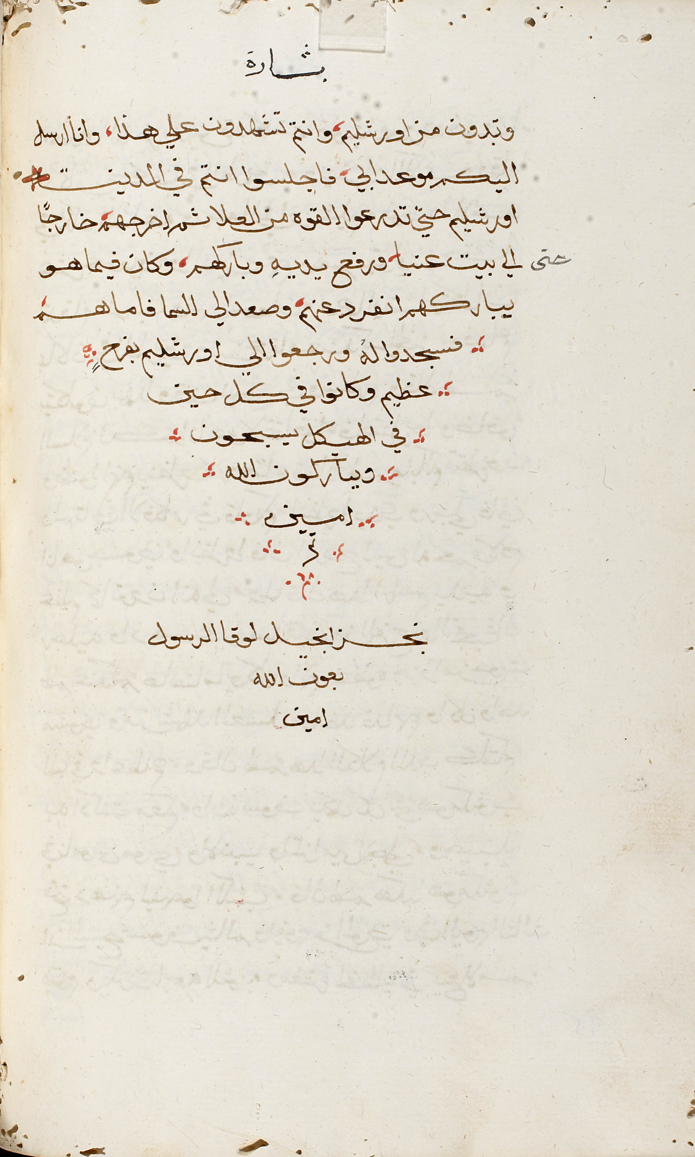 بشارة
وتبدون من اورشليم وانتم تشهدون علي هذا، وانا ارسل
اليكم موعد ابي فاجلسوا انتم في المدينة
اورشليم حتي تدرعوا القوه من العلا ثم اخرجهم خارجًا
حتى الي بيت عنيا ورفع يديه وباركهم وكان فيما هو
يباركهم انفرد عنهم وصعد الي السما فاما هم
فسجدوا له ورجعوا الي اورشليم بفرح
عظيم وكانوا في كل حين
في الهيكل يسبحون
ويباركون الله
امين
نجز انجيل لوقا الرسول
بعون الله
امين